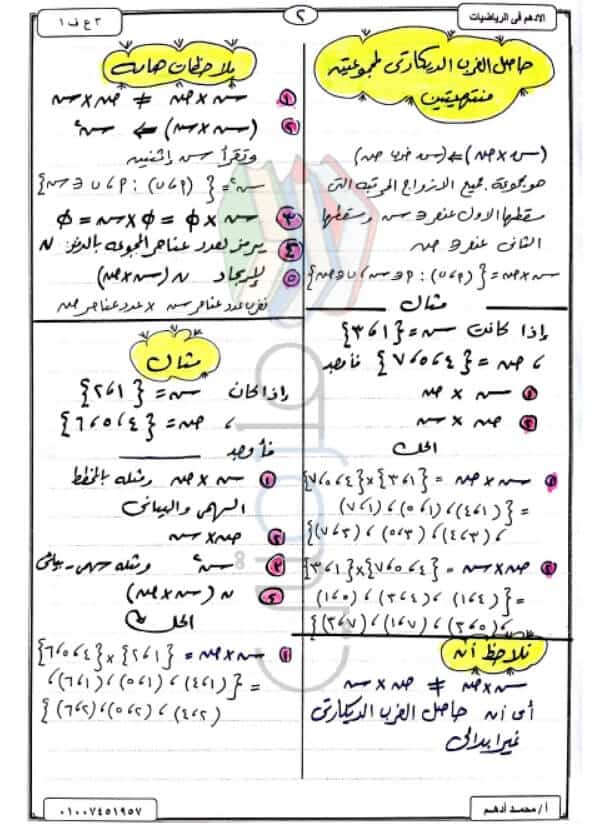 الادهم فى الرياضيات
٢
٣ ع ف ١
حاصل الضرب الديكارتى لمجموعتين
منتهيتين
(سـ × صـ) ⇐ (سـ ضرب صـ)
هو مجموعة جميع الازواج المرتبة التى
مسقطها الاول عنصر ∋ سـ ومسقطها
الثانى عنصر ∋ صـ
سـ × صـ = {(٢، ب) : ٢ ∋ سـ، ب ∋ صـ}
مثال
إذا كانت سـ = {١، ٣}
، صـ = {٤، ٥، ٧} فأوجد
١ سـ × صـ
٢ صـ × سـ
الحل
١ سـ × صـ = {١، ٣} × {٤، ٥، ٧}
= {(١، ٤)، (١، ٥)، (١، ٧)
، (٣، ٤)، (٣، ٥)، (٣، ٧)}
٢ صـ × سـ = {٤، ٥، ٧} × {١، ٣}
= {(٤، ١)، (٤، ٣)، (٥، ١)
، (٥، ٣)، (٧، ١)، (٧، ٣)}
نلاحظ أنه
سـ × صـ ≠ صـ × سـ
أى أن حاصل الضرب الديكارتى
غير ابدالى
ملاحظات هامه
١ سـ × صـ ≠ صـ × سـ
٢ (سـ × سـ) ⇐ سـ²
وتقرأ سـ اثنين
سـ² = {(٢، ب) : ٢، ب ∋ سـ}
٣ سـ × Ø = Ø × سـ = Ø
٤ يرمز لعدد عناصر المجموعه بالرمز: ن
٥ لإيجاد ن (سـ × صـ)
نضرب عدد عناصر سـ × عدد عناصر صـ
مثال
إذا كان سـ = {١، ٢}
، صـ = {٤، ٥، ٦}
فأوجد
١ سـ × صـ ومثله بالمخطط
السهمى والبيانى
٢ صـ × سـ
٣ سـ² ومثله سهمى - بيانى
٤ ن (سـ × صـ)
الحل
١ سـ × صـ = {١، ٢} × {٤، ٥، ٦}
= {(١، ٤)، (١، ٥)، (١، ٦)،
(٢، ٤)، (٢، ٥)، (٢، ٦)}
أ / محمد أدهم
٠١٠٠٧٤٥١٩٥٧